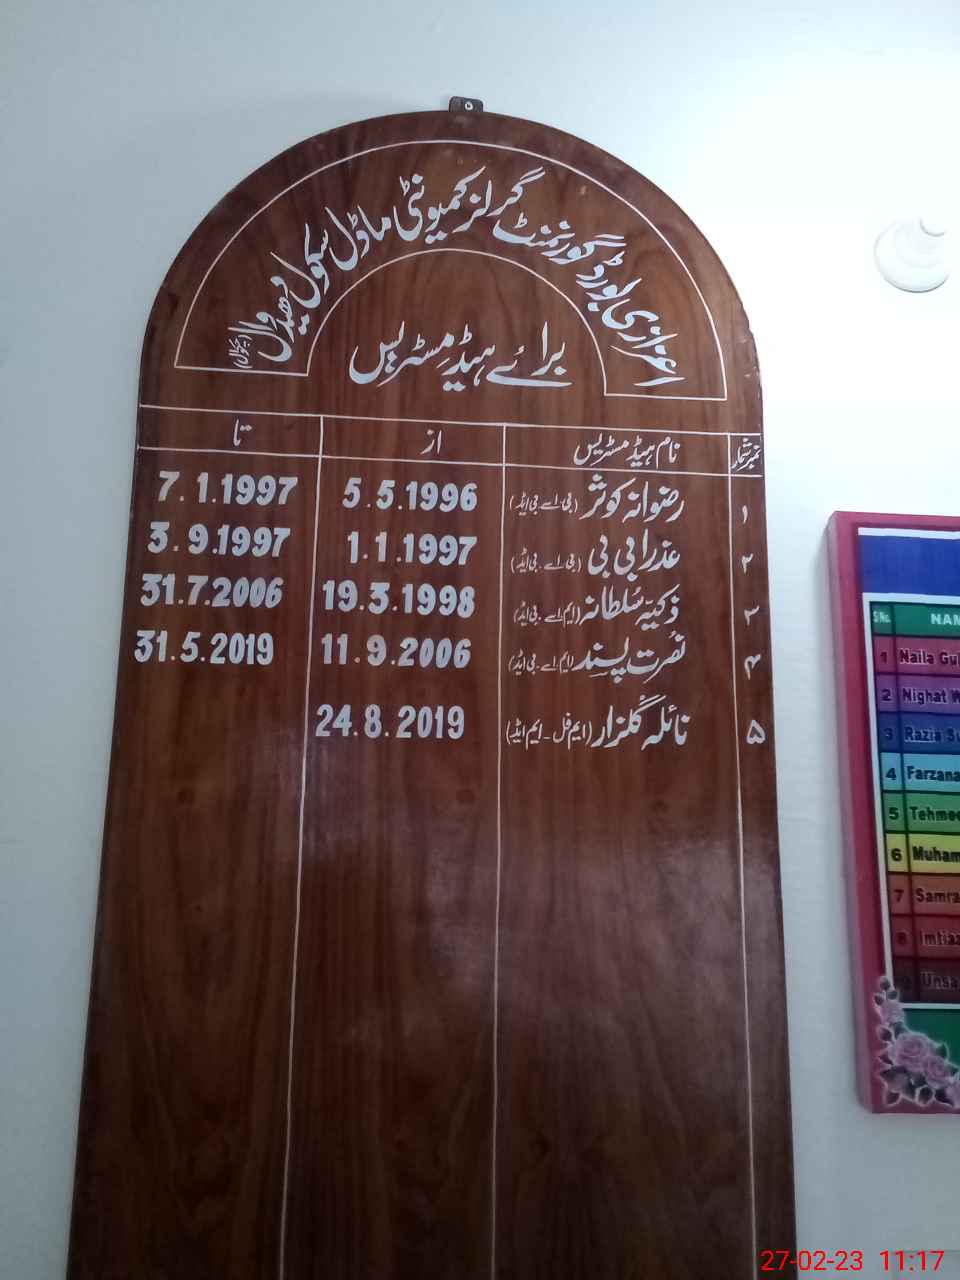 اعزازی بورڈ گورنمنٹ گرلز کمیونٹی ماڈل سکول دھیدوال
برائے ہیڈ مسٹریس
نمبر شمار نام ہیڈ مسٹریس از تا
۱ رضوانہ کوثر (بی۔اے۔بی ایڈ) 5.5.1996 7.1.1997
۲ عذرا بی بی (بی۔اے۔بی ایڈ) 1.1.1997 3.9.1997
۳ ذکیہ سُلطانہ (ایم۔اے۔بی ایڈ) 19.3.1998 31.7.2006
۴ نصرت پسند (ایم۔اے۔بی ایڈ) 11.9.2006 31.5.2019
۵ نائلہ گلزار (ایم فل ۔ ایم ایڈ) 24.8.2019
S No. NAM
1 Naila Gul
2 Nighat W
3 Razia Su
4 Farzana
5 Tehmee
6 Muham
7 Samra
8 Imtiaz
Unsa
27-02-23 11:17